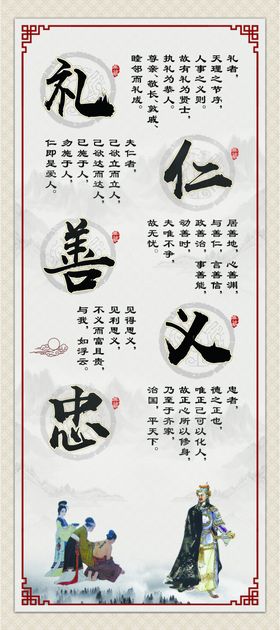 礼
礼者，
天理之节序，
人事之义则。
故有礼为贤士，
执礼为恭人。
尊亲、敬长、敦戚、
睦邻而礼成。
仁
夫仁者，
己欲立而立人，
己欲达而达人，
已施于人，
勿施于人，
仁即是爱人。
善
居善地，心善渊，
与善仁，言善信，
政善治，事善能，
动善时，
夫唯不争，
故无忧
义
见得思义，
见利思义，
不义而富且贵，
与我，如浮云。
忠
忠者，
德之正也，
唯正己可以化人，
故正心所以修身，
乃至于齐家，
治国，平天下。